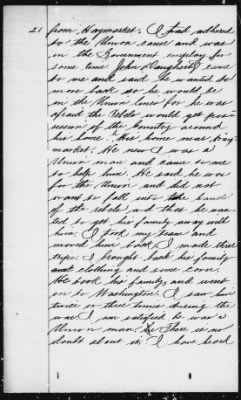 21 from Haymarket. I had adhered
to the Union cause and was
in the Government employ for
some time. John Daugherty came
to me and said he wanted to
move back so he would be
in the Union lines for he was
afraid the Rebels would get poss-
ession of the country around
his home. His home near Hay-
market. He new I was a
Union man and came to me
to help him. He said he was
for the Union and did not
want to fall into the hands
of the rebels and that he wan-
ted to get his family away with
him. I took my team and
moved him back. I made three
trips. I brought back his family
and clothing and some corn.
He took his family and went
on to Washington. I saw him
twice or three times during the
war. I am satisfied he was a
Union man. There is no
doubt about it. I have heard